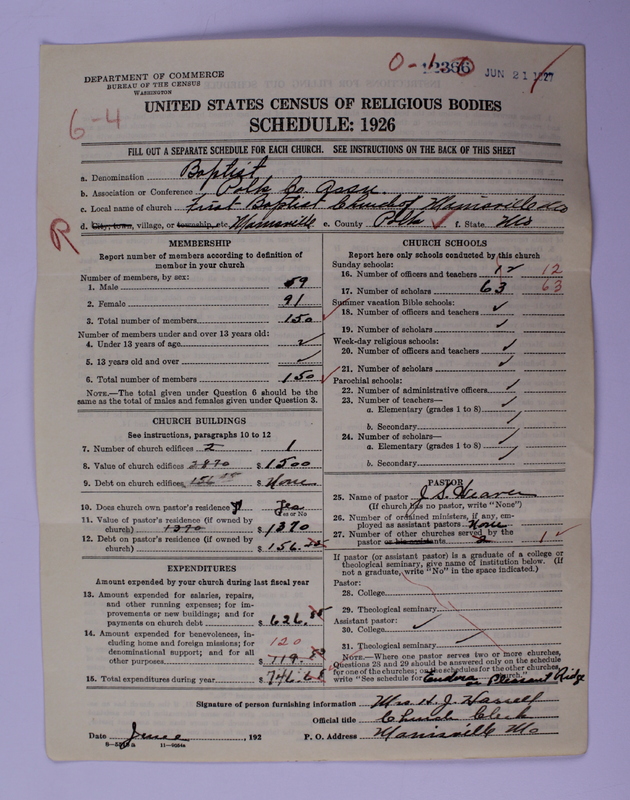 0-1-0 12366 JUN 21 1927
DEPARTMENT OF COMMERCE
BUREAU OF THE CENSUS
WASHINGTON
6-4
UNITED STATES CENSUS OF RELIGIOUS BODIES
SCHEDULE: 1926
FILL OUT A SEPARATE SCHEDULE FOR EACH CHURCH. SEE INSTRUCTIONS ON THE BACK OF THIS SHEET
a. Denomination Baptist
b. Association or Conference Polk Co. Assn.
c. Local name of church First Baptist Church of Morrisville Mo
d. City, town, village, or township, etc Morrisville e. County Polk f. State Mo
R
MEMBERSHIP
Report number of members according to definition of
member in your church
Number of members, by sex:
1. Male 59
2. Female 91
3. Total number of members 150
Number of members under and over 13 years old:
4. Under 13 years of age ✓
5. 13 years old and over ✓
6. Total number of members 150
NOTE.—The total given under Question 6 should be the
same as the total of males and females given under Question 3.
CHURCH BUILDINGS
See instructions, paragraphs 10 to 12
7. Number of church edifices 2 1
8. Value of church edifices 2870 $1500
9. Debt on church edifices 156 $ None
10. Does church own pastor's residence? Yes
Yes or No
11. Value of pastor's residence (if owned by
church) 1370 $1370
12. Debt on pastor's residence (if owned by
church) $156.
EXPENDITURES
Amount expended by your church during last fiscal year
13. Amount expended for salaries, repairs,
and other running expenses; for im-
provements or new buildings; and for
payments on church debt $626.
14. Amount expended for benevolences, in-
cluding home and foreign missions; for 120
denominational support; and for all
other purposes $119.
15. Total expenditures during year $746.
CHURCH SCHOOLS
Report here only schools conducted by this church
Sunday schools:
16. Number of officers and teachers 12 12
17. Number of scholars 63 63
Summer vacation Bible schools:
18. Number of officers and teachers ✓
19. Number of scholars ✓
Week-day religious schools:
20. Number of officers and teachers ✓
21. Number of scholars ✓
Parochial schools:
22. Number of administrative officers ✓
23. Number of teachers—
a. Elementary (grades 1 to 8) ✓
b. Secondary ✓
24. Number of scholars—
a. Elementary (grades 1 to 8) ✓
b. Secondary ✓
PASTOR
25. Name of pastor J. S. Heaven
(If church has no pastor, write "None")
26. Number of ordained ministers, if any, em-
ployed as assistant pastors None
27. Number of other churches served by the
pastor or his assistants 2 1
If pastor (or assistant pastor) is a graduate of a college or
theological seminary, give name of institution below. (If
not a graduate, write "No" in the space indicated.)
Pastor:
28. College
29. Theological seminary
Assistant pastor:
30. College ✓
31. Theological seminary ✓
NOTE.—Where one pastor serves two or more churches,
Questions 28 and 29 should be answered only on the schedule
for one of the churches; on the schedules for the other churches,
write "See schedule for Eudora or Pleasant Ridge church."
Signature of person furnishing information Mrs. H. J. Harrell
Official title Church Clerk
Date June , 192 P. O. Address Morrisville Mo
11-9034a